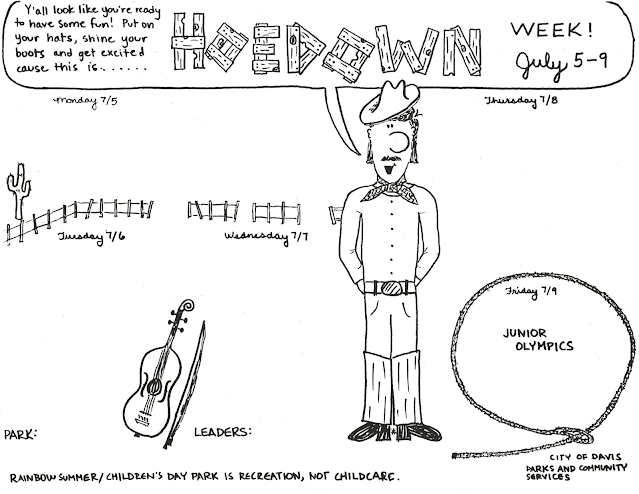 Y'all look like you're ready
to have some fun! Put on
your hats, shine your
boots and get excited
cause this is......
HOEDOWN
WEEK!
July 5-9
Monday 7/5
Thursday 7/8
Tuesday 7/6
Wednesday 7/7
Friday 7/9
JUNIOR
OLYMPICS
PARK:
LEADERS:
CITY OF DAVIS
PARKS AND COMMUNITY
SERVICES
RAINBOW SUMMER/CHILDREN'S DAY PARK IS RECREATION, NOT CHILDCARE.